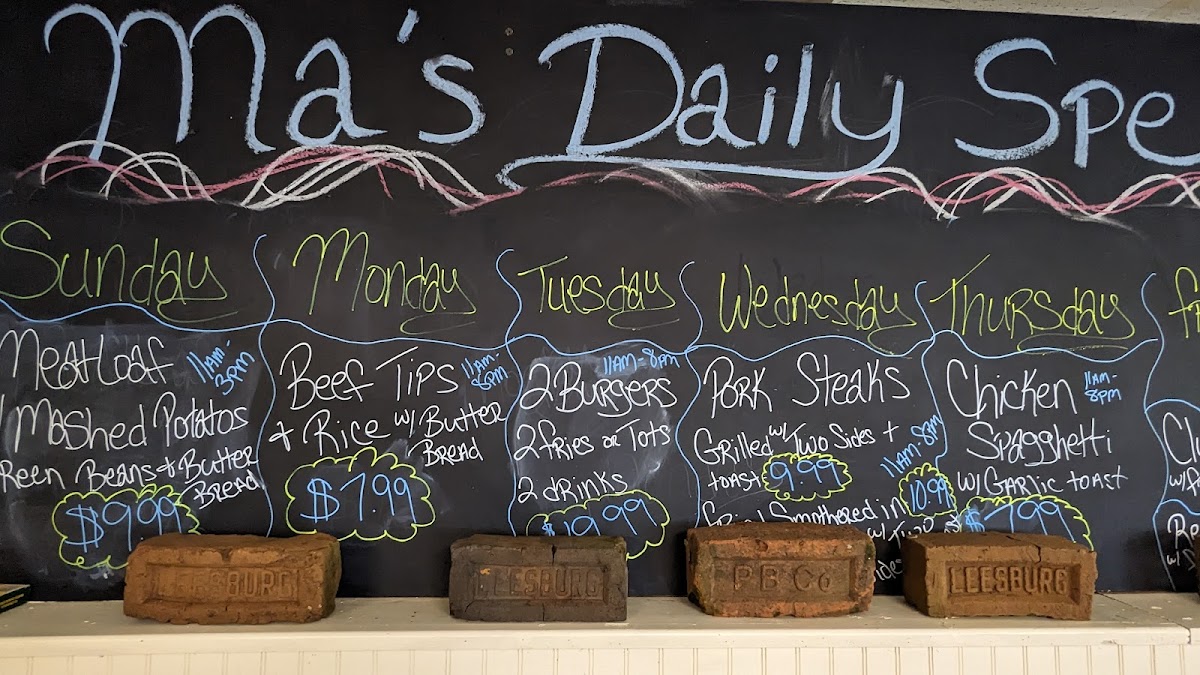 Ma's Daily Spe
Sunday
Meatloaf
11AM-
3PM
Mashed Potatoes
Reen Beans + Butter
Bread
$9.99
Monday
Beef Tips
11AM-
8PM
+ Rice w/ Butter
Bread
$7.99
Tuesday
11AM-8PM
2 Burgers
2 fries or Tots
2 drinks
Wednesday
Pork Steaks
Grilled w/ Two Sides +
toast 9.99
11AM-8PM
10.99
Smothered in
Thursday
Chicken
11AM-
8PM
Spagghetti
w/ Garlic toast
$7.99
LEESBURG
LEESBURG
PB Co
LEESBURG